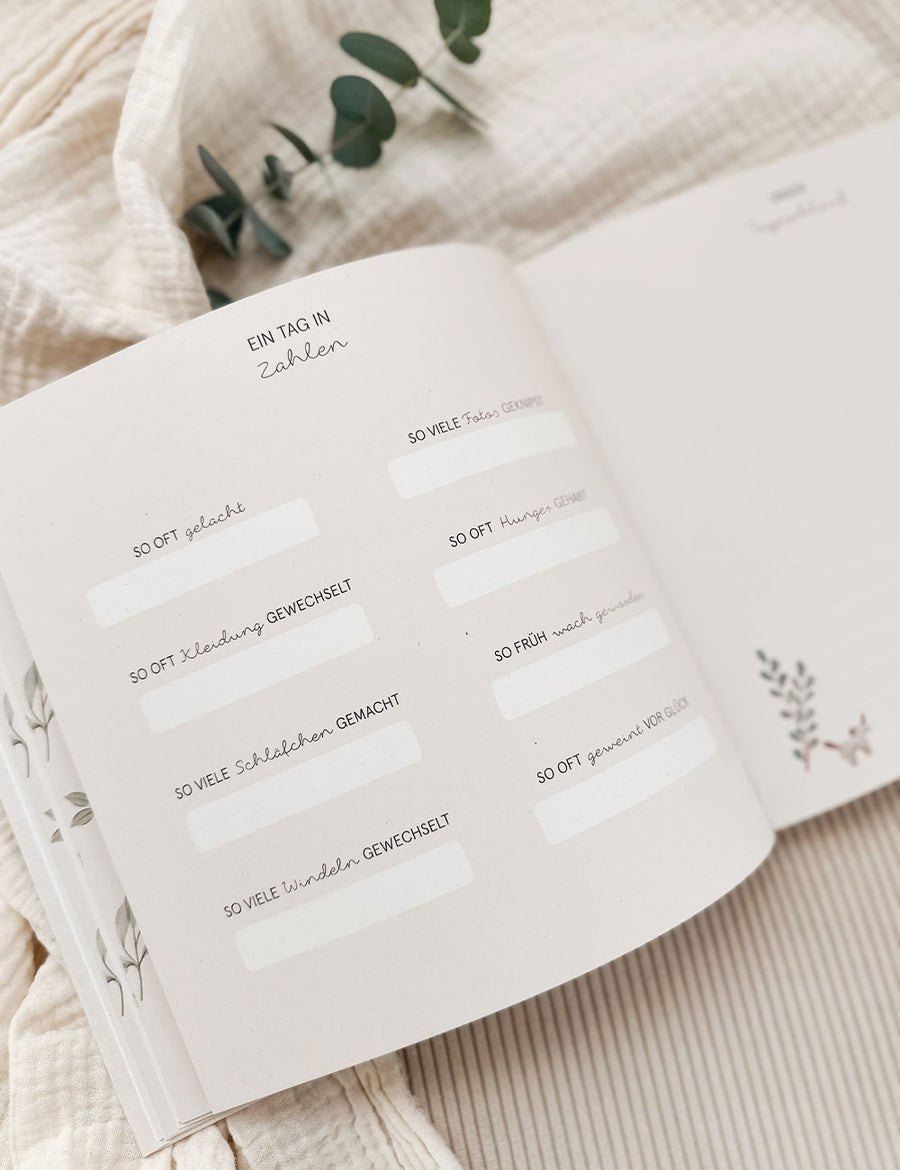 EIN TAG IN
Zahlen
SO OFT gelacht
SO OFT Kleidung GEWECHSELT
SO VIELE Schläfchen GEMACHT
SO VIELE Windeln GEWECHSELT
SO VIELE Fotos GEKNIPST
SO OFT Hunger GEHABT
SO FRÜH wach geworden
SO OFT geweint VOR GLÜCK